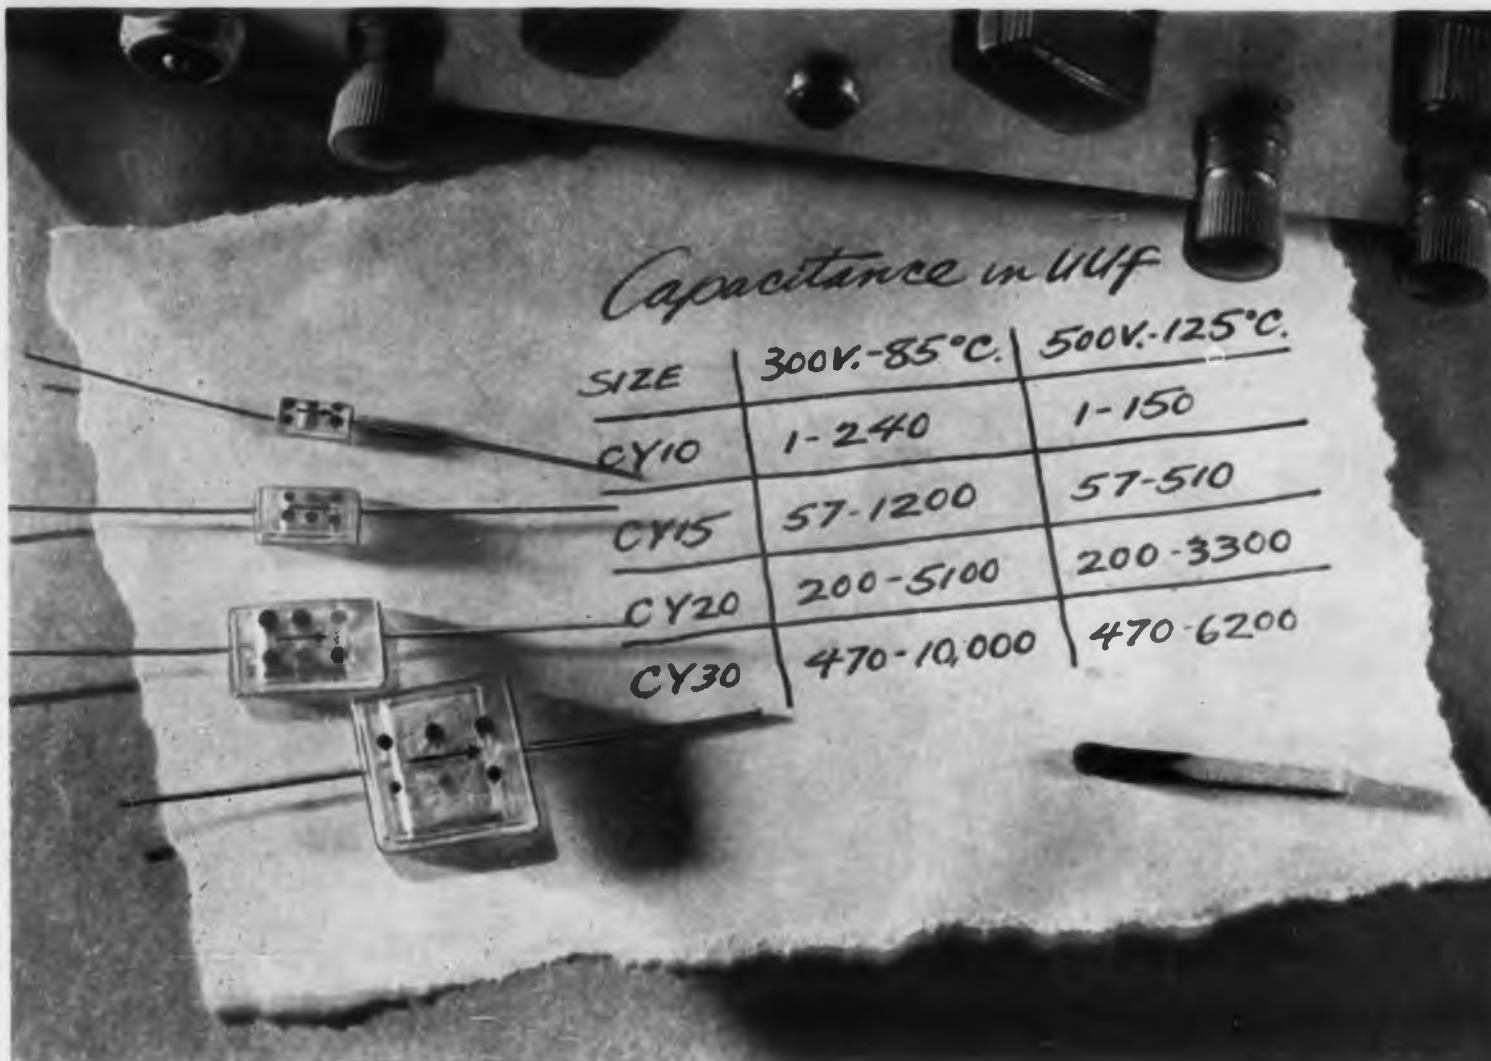 Capacitance in UUf
SIZE 300V.-85°C. 500V.-125°C.
CY10 1-240 1-150
CY15 57-1200 57-510
CY20 200-5100 200-3300
CY30 470-10,000 470-6200